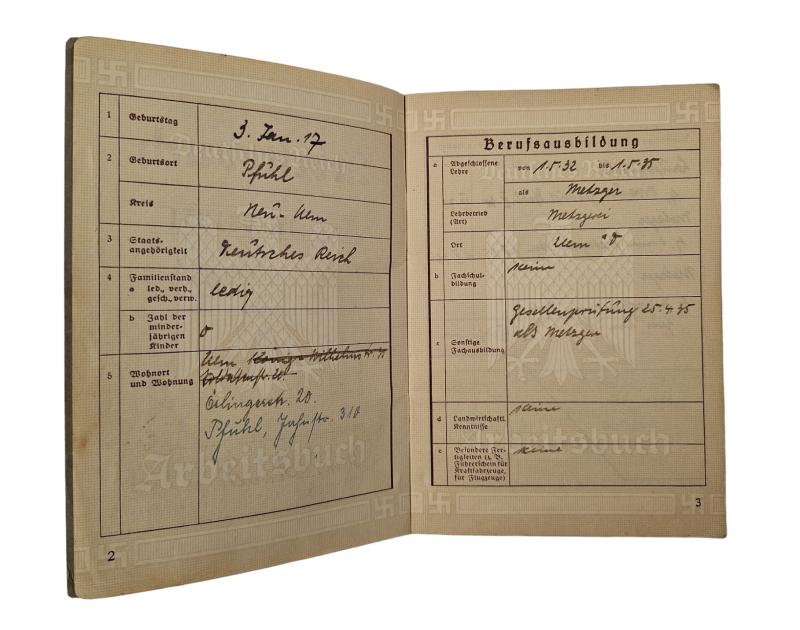 1 Geburtstag 3. Jan. 17
2 Geburtsort Pfühl
Kreis Neu-Ulm
3 Staats-
angehörigkeit Deutsches Reich
4 Familienstand
a led., verh.,
gesch., verw. ledig
b Zahl der
minder-
jährigen
Kinder 0
5 Wohnort
und Wohnung
Ulm König-Wilhelmstr.
20.
Örlingerstr. 20.
Pfühl, Jahnstr. 310
Arbeitsbuch
2
Berufsausbildung
a Abgeschlossene
Lehre
von 1.5.32 bis 1.5.35
als Metzger
Lehrbetrieb
(Art) Metzgerei
Ort Ulm a/D
b Fachschul-
bildung keine
c Sonstige
Fachausbildung
Gesellenprüfung 25.4.35
als Metzger
d Landwirtschaftl.
Kenntnisse keine
e Besondere Fer-
tigkeiten (z. B.
Führerschein für
Kraftfahrzeuge,
für Flugzeuge) keine
Arbeitsbuch
3